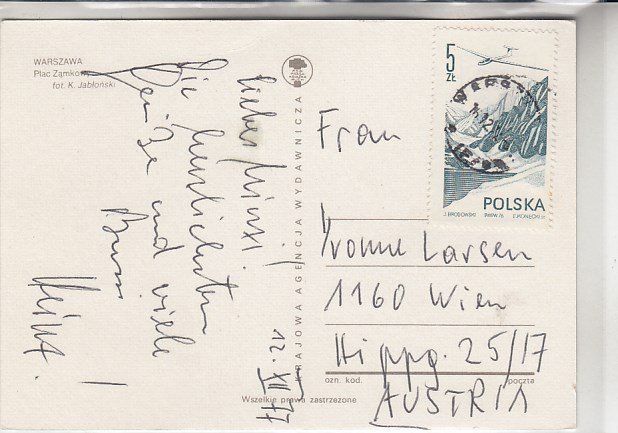 WARSZAWA
Plac Zamkowy
fot. K. Jabłoński
Liebes Minsi!
Die herzlichsten
Grüße und viele
Bussi
Heinz!
12. XII 77
KRAJOWA AGENCJA WYDAWNICZA
5
ZŁ
POLSKA
Frau
Yvonne Larsen
1160 Wien
Hippg. 25/17
AUSTRIA
ozn. kod.
poczta
Wszelkie prawa zastrzeżone